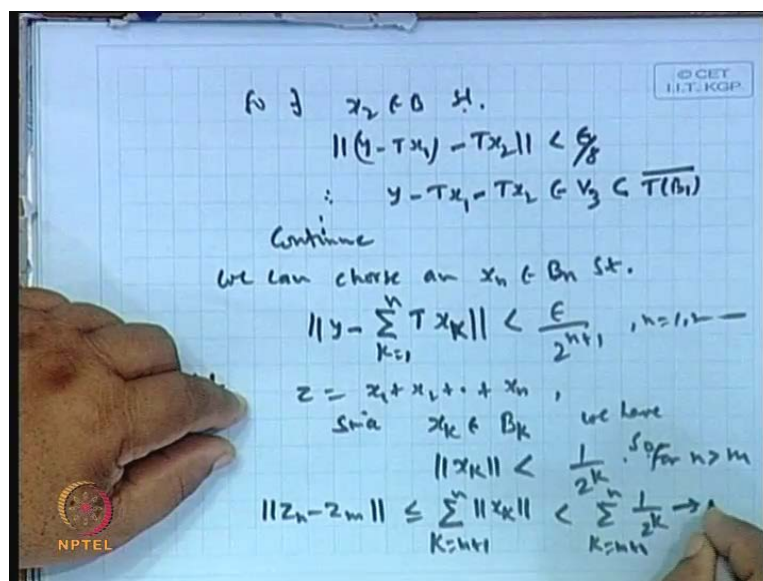 © CET
I.I.T. KGP
So ∃ x₂ ∈ B st.
||(y - Tx₁) - Tx₂|| < ε/8
∴ y - Tx₁ - Tx₂ ∈ V₃ ⊂ \overline{T(B₁)}
Continue
we can choose an xₙ ∈ Bₙ st.
||y - \sum_{K=1}^{n} T x_K|| < \frac{ε}{2^{n+1}}, n=1,2 —
z = x₁ + x₂ + . + xₙ ,
Since x_K ∈ B_K we have
||x_K|| < \frac{1}{2^K} . So for n > m
||zₙ - zₘ|| ≤ \sum_{K=m+1}^{n} ||x_K|| < \sum_{K=m+1}^{n} \frac{1}{2^K} →
NPTEL